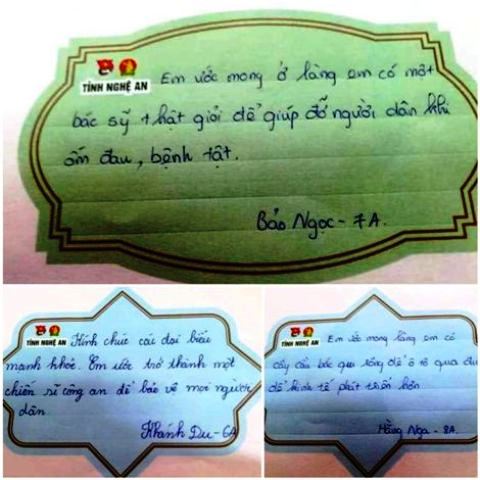 TỈNH NGHỆ AN Em ước mong ở làng em có một
bác sỹ thật giỏi để giúp đỡ người dân khi
ốm đau, bệnh tật.
Bảo Ngọc - 7A.
TỈNH NGHỆ AN Kính chúc các đại biểu
mạnh khỏe. Em ước trở thành một
chiến sĩ công an để bảo vệ mọi người
dân.
Khánh Du - 6A
TỈNH NGHỆ AN Em ước mong làng em có
cây cầu bắc qua sông để ô tô qua
để kinh tế phát triển hơn
Hằng Nga - 8A.